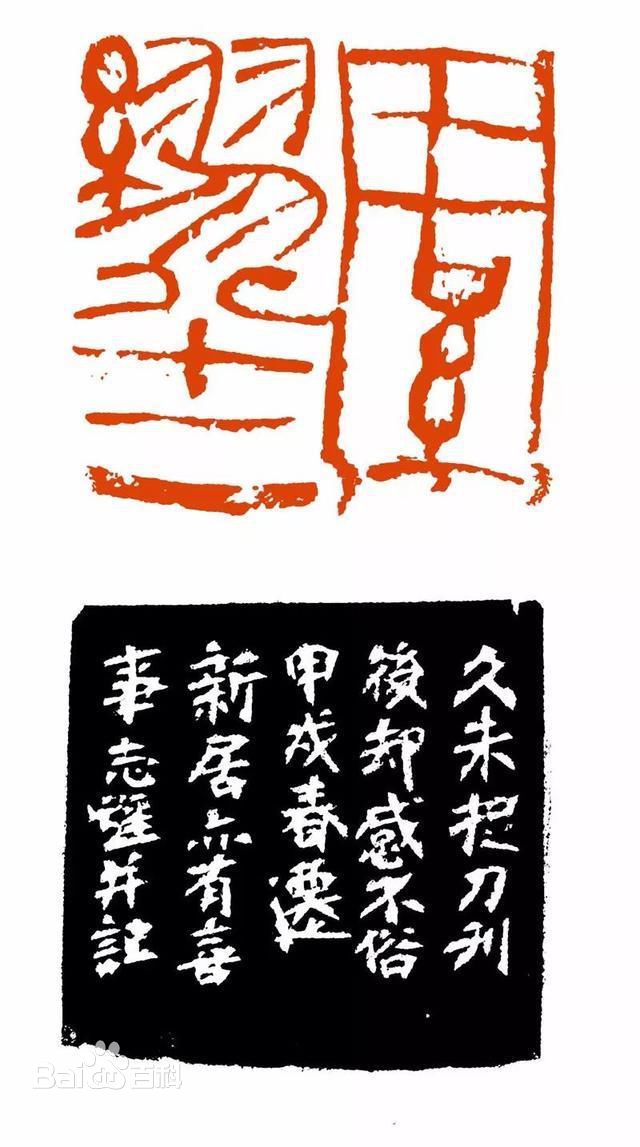 久未捉刀刊
後却感不俗
甲戌春遷
新居亦有喜
事志并記
Bai百科